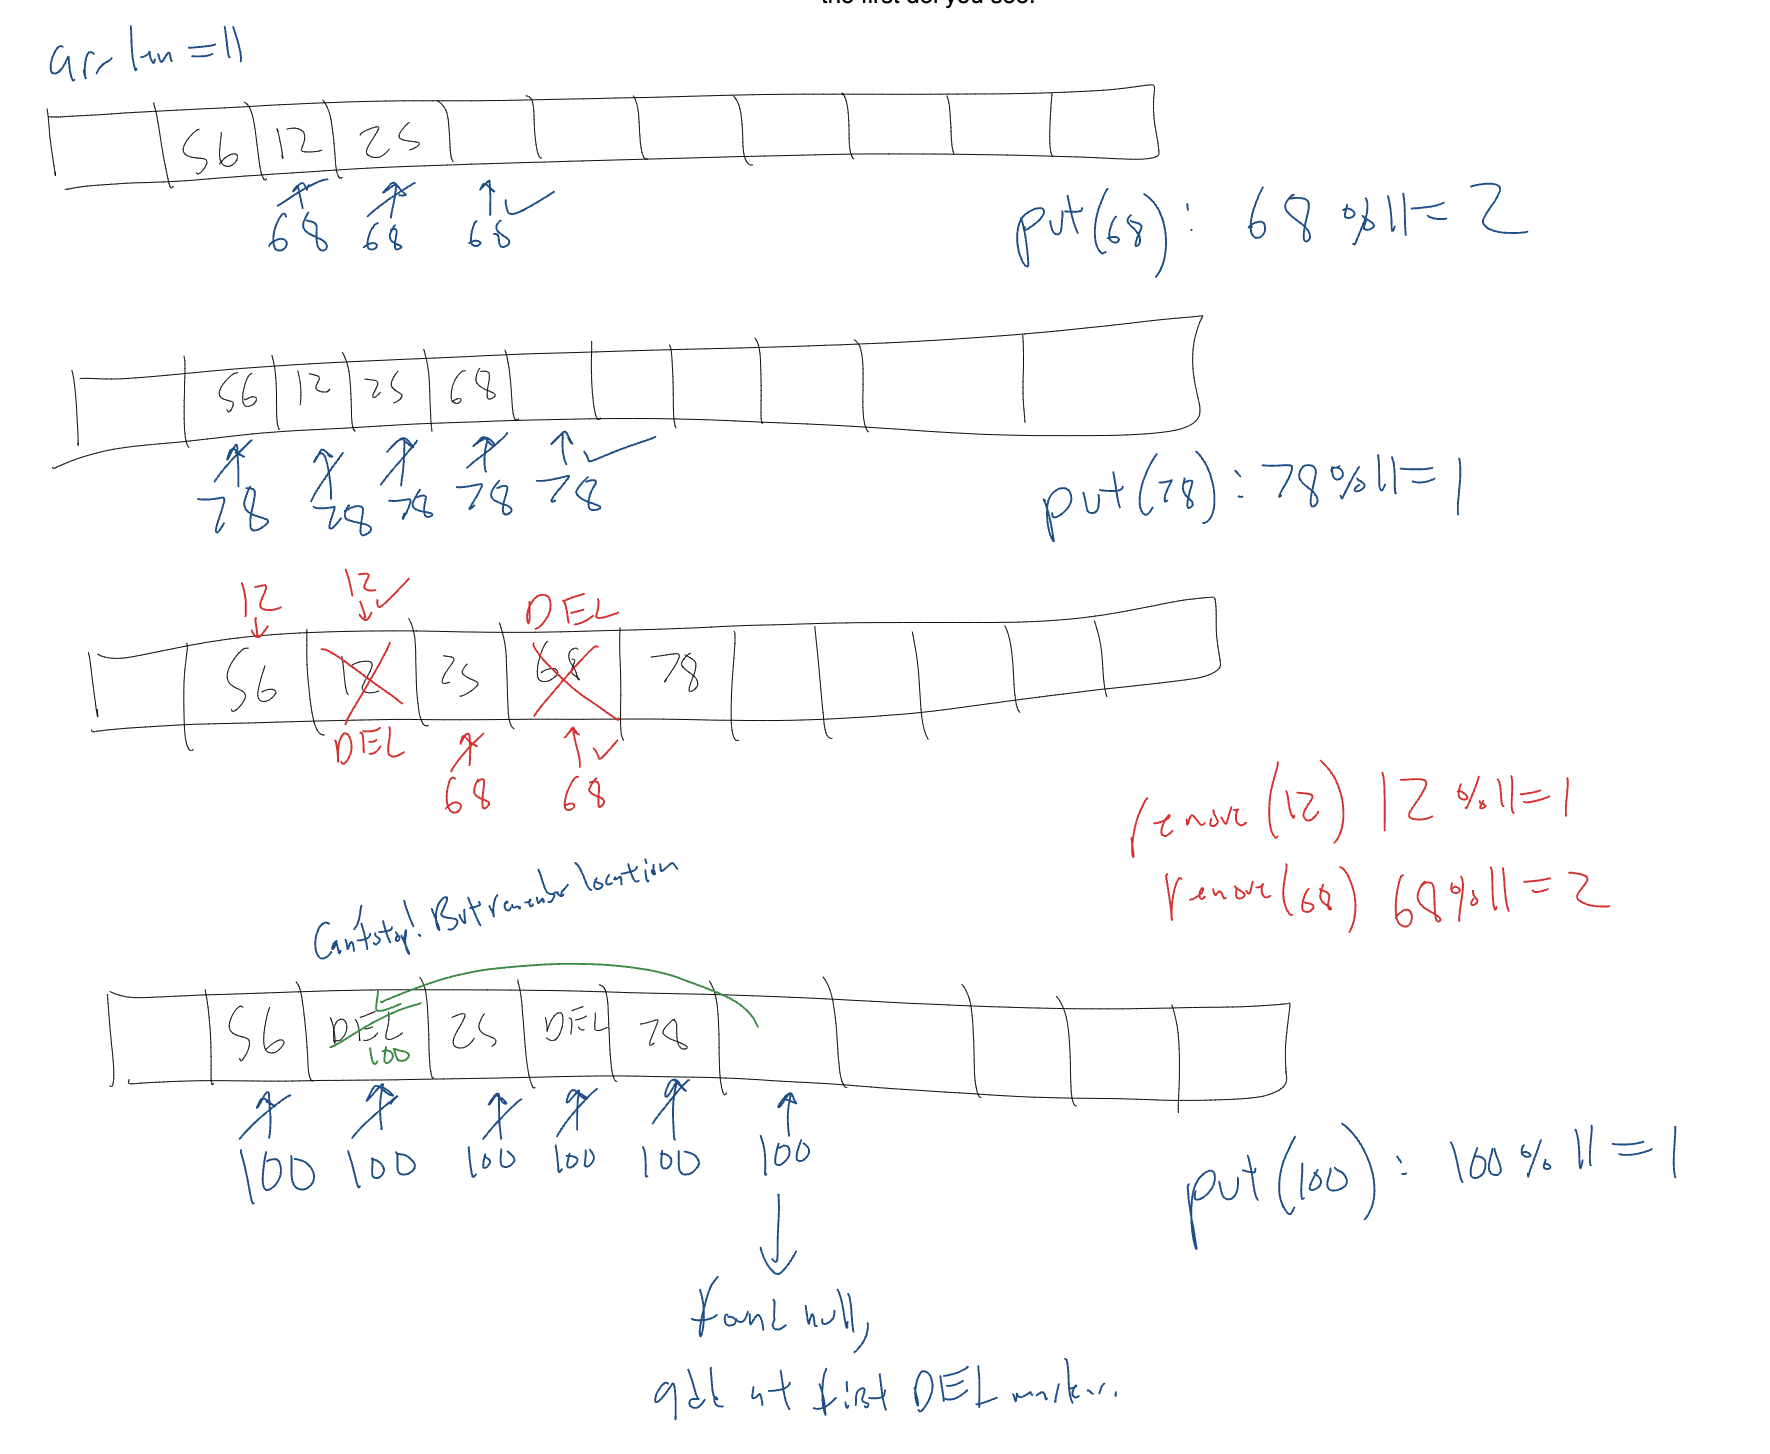 the first del you see.
arr len = 11
56 12 25
68 68 68
put(68): 68 % 11 = 2
56 12 25 68
78 78 78 78 78
put(78): 78 % 11 = 1
12 12 DEL
56 12 25 68 78
DEL 68 68
remove(12) 12 % 11 = 1
remove(68) 68 % 11 = 2
Can't stop! But remember location
56 DEL 25 DEL 78
100
100 100 100 100 100 100
put(100): 100 % 11 = 1
found null,
add at first DEL marker.